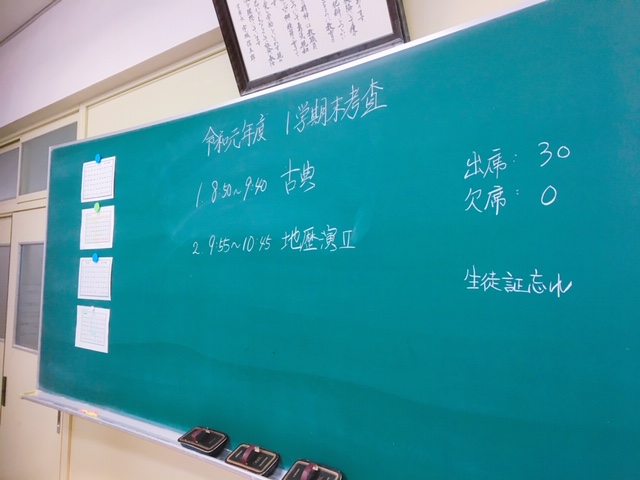 令和元年度 1学期末考査
1. 8:50~9:40 古典
2. 9:55~10:45 地歴演Ⅱ
出席: 30
欠席: 0
生徒証忘れ